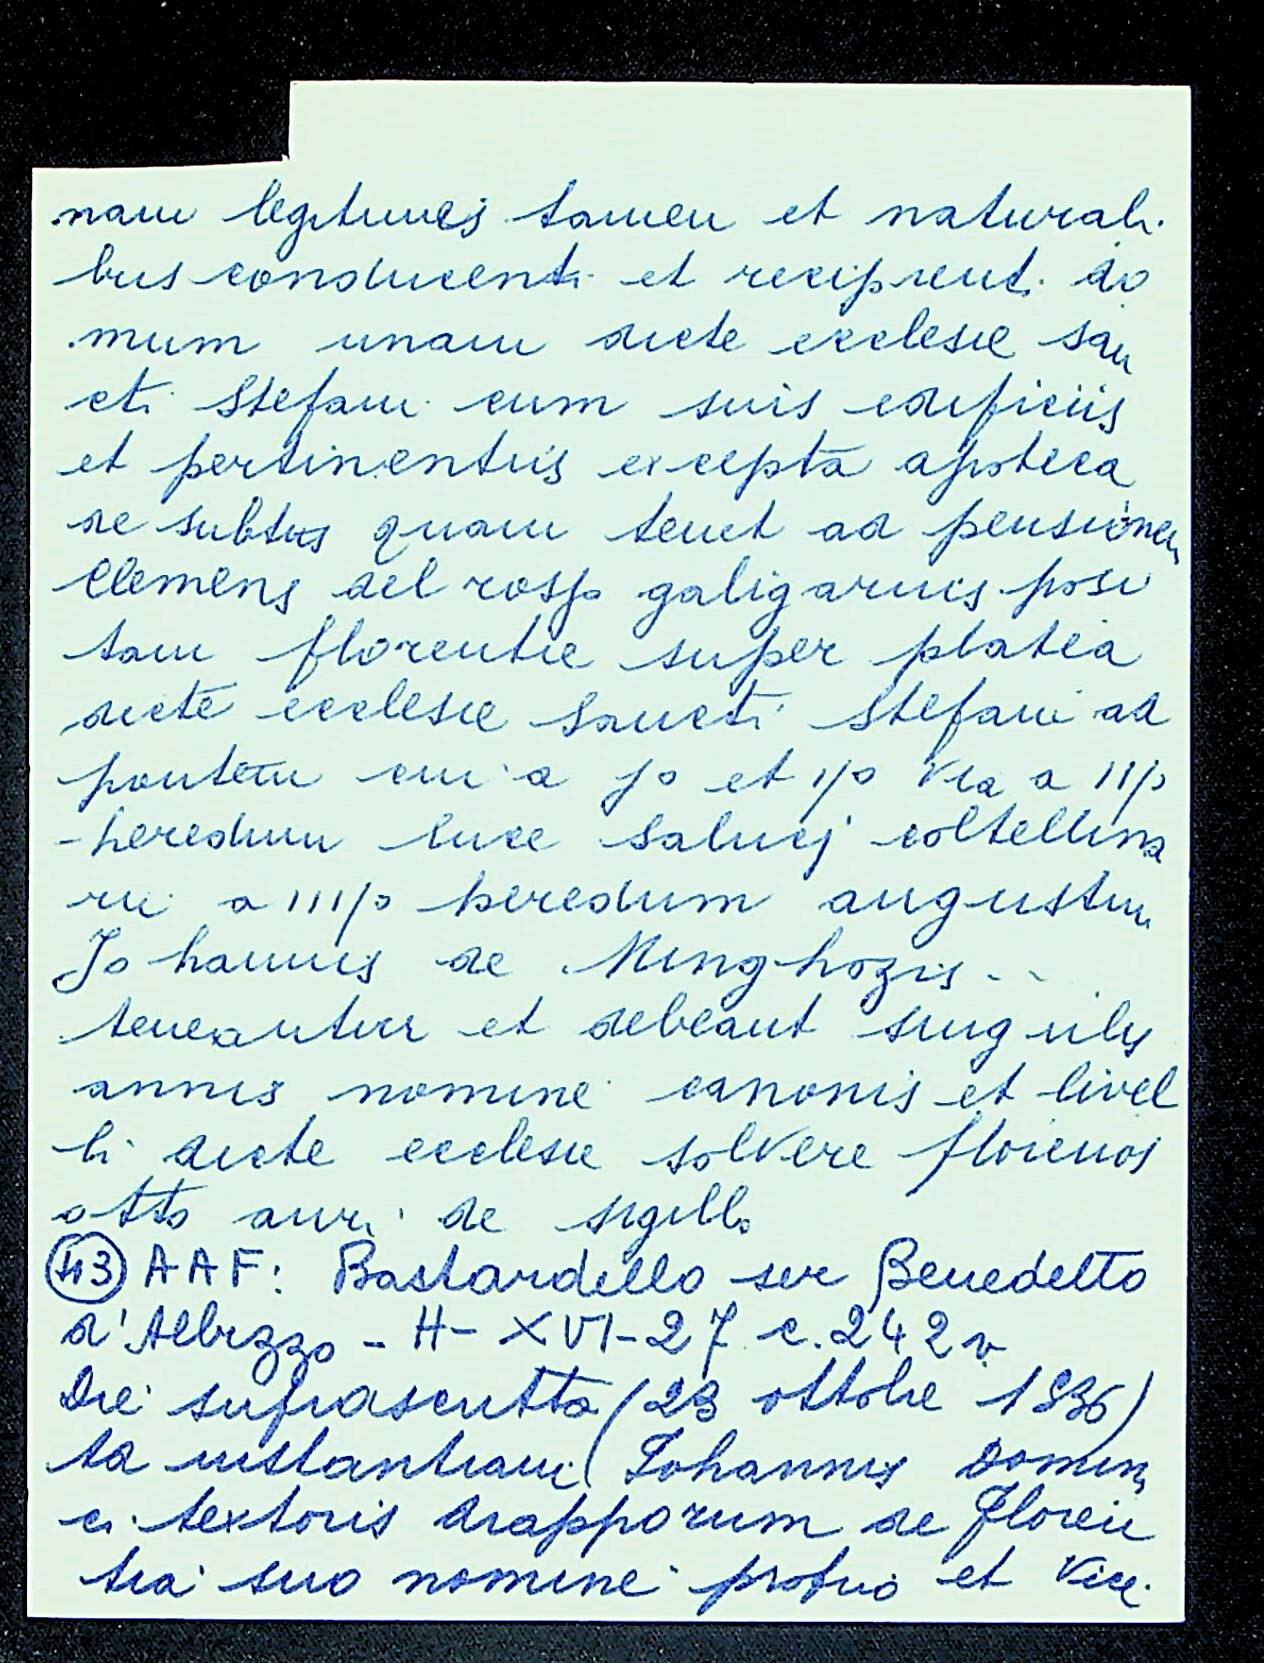 nam legitimis tamen et naturali
bus conducenti et recipienti do
mum unam dicte ecclesie san
cti Stefani cum suis edificiis
et pertinentiis excepta apoteca
de subtus quam tenet ad pensionem
Clemens del rosso galigarius posi
tam florentie super platea
dicte ecclesie Sancti Stefani ad
pontem cui a jo et ijo via a iijo
heredum luce Salucj coltellina
rii a iiijo heredum augustini
Johannis de Minghozis..
teneantur et debeant singulis
annis nomine canonis et livel
li dicte ecclesie solvere florenos
otto auri de sigillo
(43) AAF: Bastardello ser Benedetto
d'Albizzo - H - XVI - 27 c. 242v
Die suprascritta (23 ottobre 1536)
ad instantiam Johannis Domini
ci textoris drapporum de Floren
tia suo nomine proprio et vice